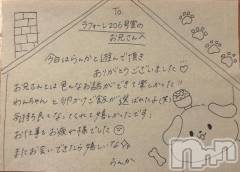 To
ラフォーレ205号室の
お兄さんへ
今日はらんかと遊んで頂き
ありがとうございました♡
お兄さんとは色んなお話ができて楽しかった!!
わんちゃんと卵かけご飯が選ばれたよ(笑)
気持ち良くなってくれて嬉しかったです!
お仕事もお疲れ様でした
またお会いできたら嬉しいな
らんか